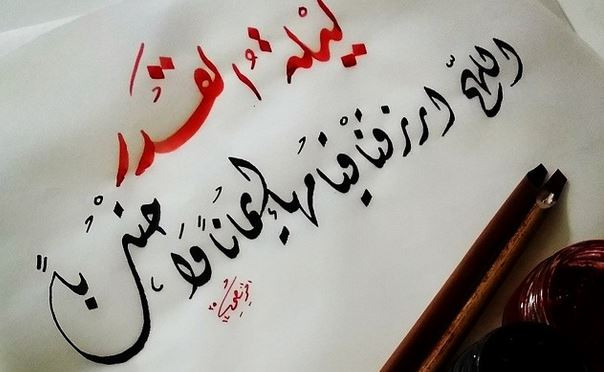 ليلة القدر
اللهم ارزقنا قيامها إيمانًا واحتسابًا